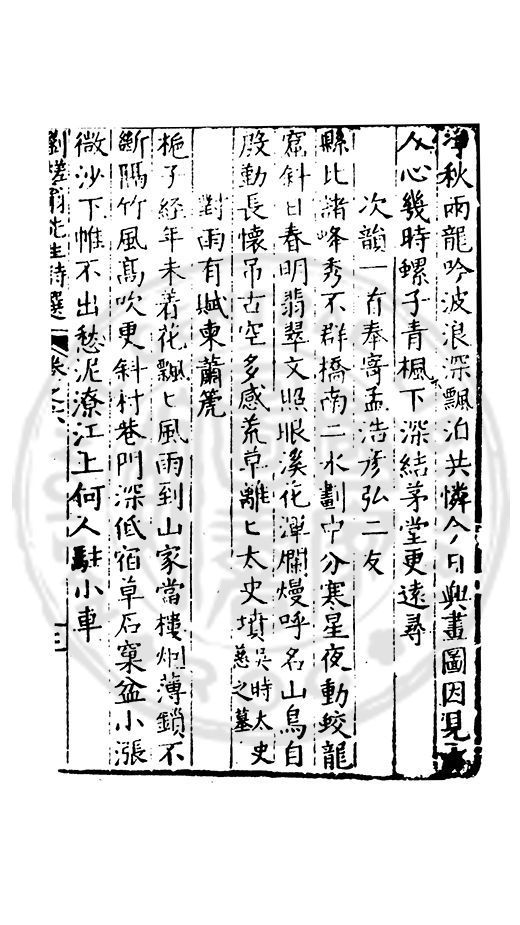 淨秋雨龍吟波浪深飄泊共憐今日興畫圖因見
人心幾時螺子青楓下深結茅堂更遠尋
次韻一首奉寄孟浩彥弘二友
縣比諸峰秀不群橋南二水劃中分寒星夜動蛟龍
窟斜日春明翡翠文照眼溪花渾爛熳呼名山鳥自
殷勤長懷吊古空多感荒草離匕太史墳吳時太史慈之墓
對雨有賦柬蕭篪
梔子經年未着花飄匕風雨到山家當樓烟薄鎖不
斷隔竹風高吹更斜村巷門深低宿草石窠盆小漲
微沙下帷不出愁泥潦江上何人駐小車
劉槎翁先生詩選 卷之六 三